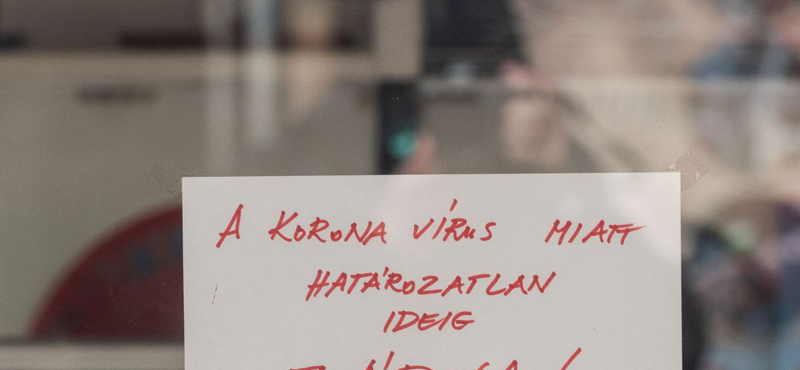 A KORONA VÍRUS MIATT
HATÁROZATLAN
IDEIG